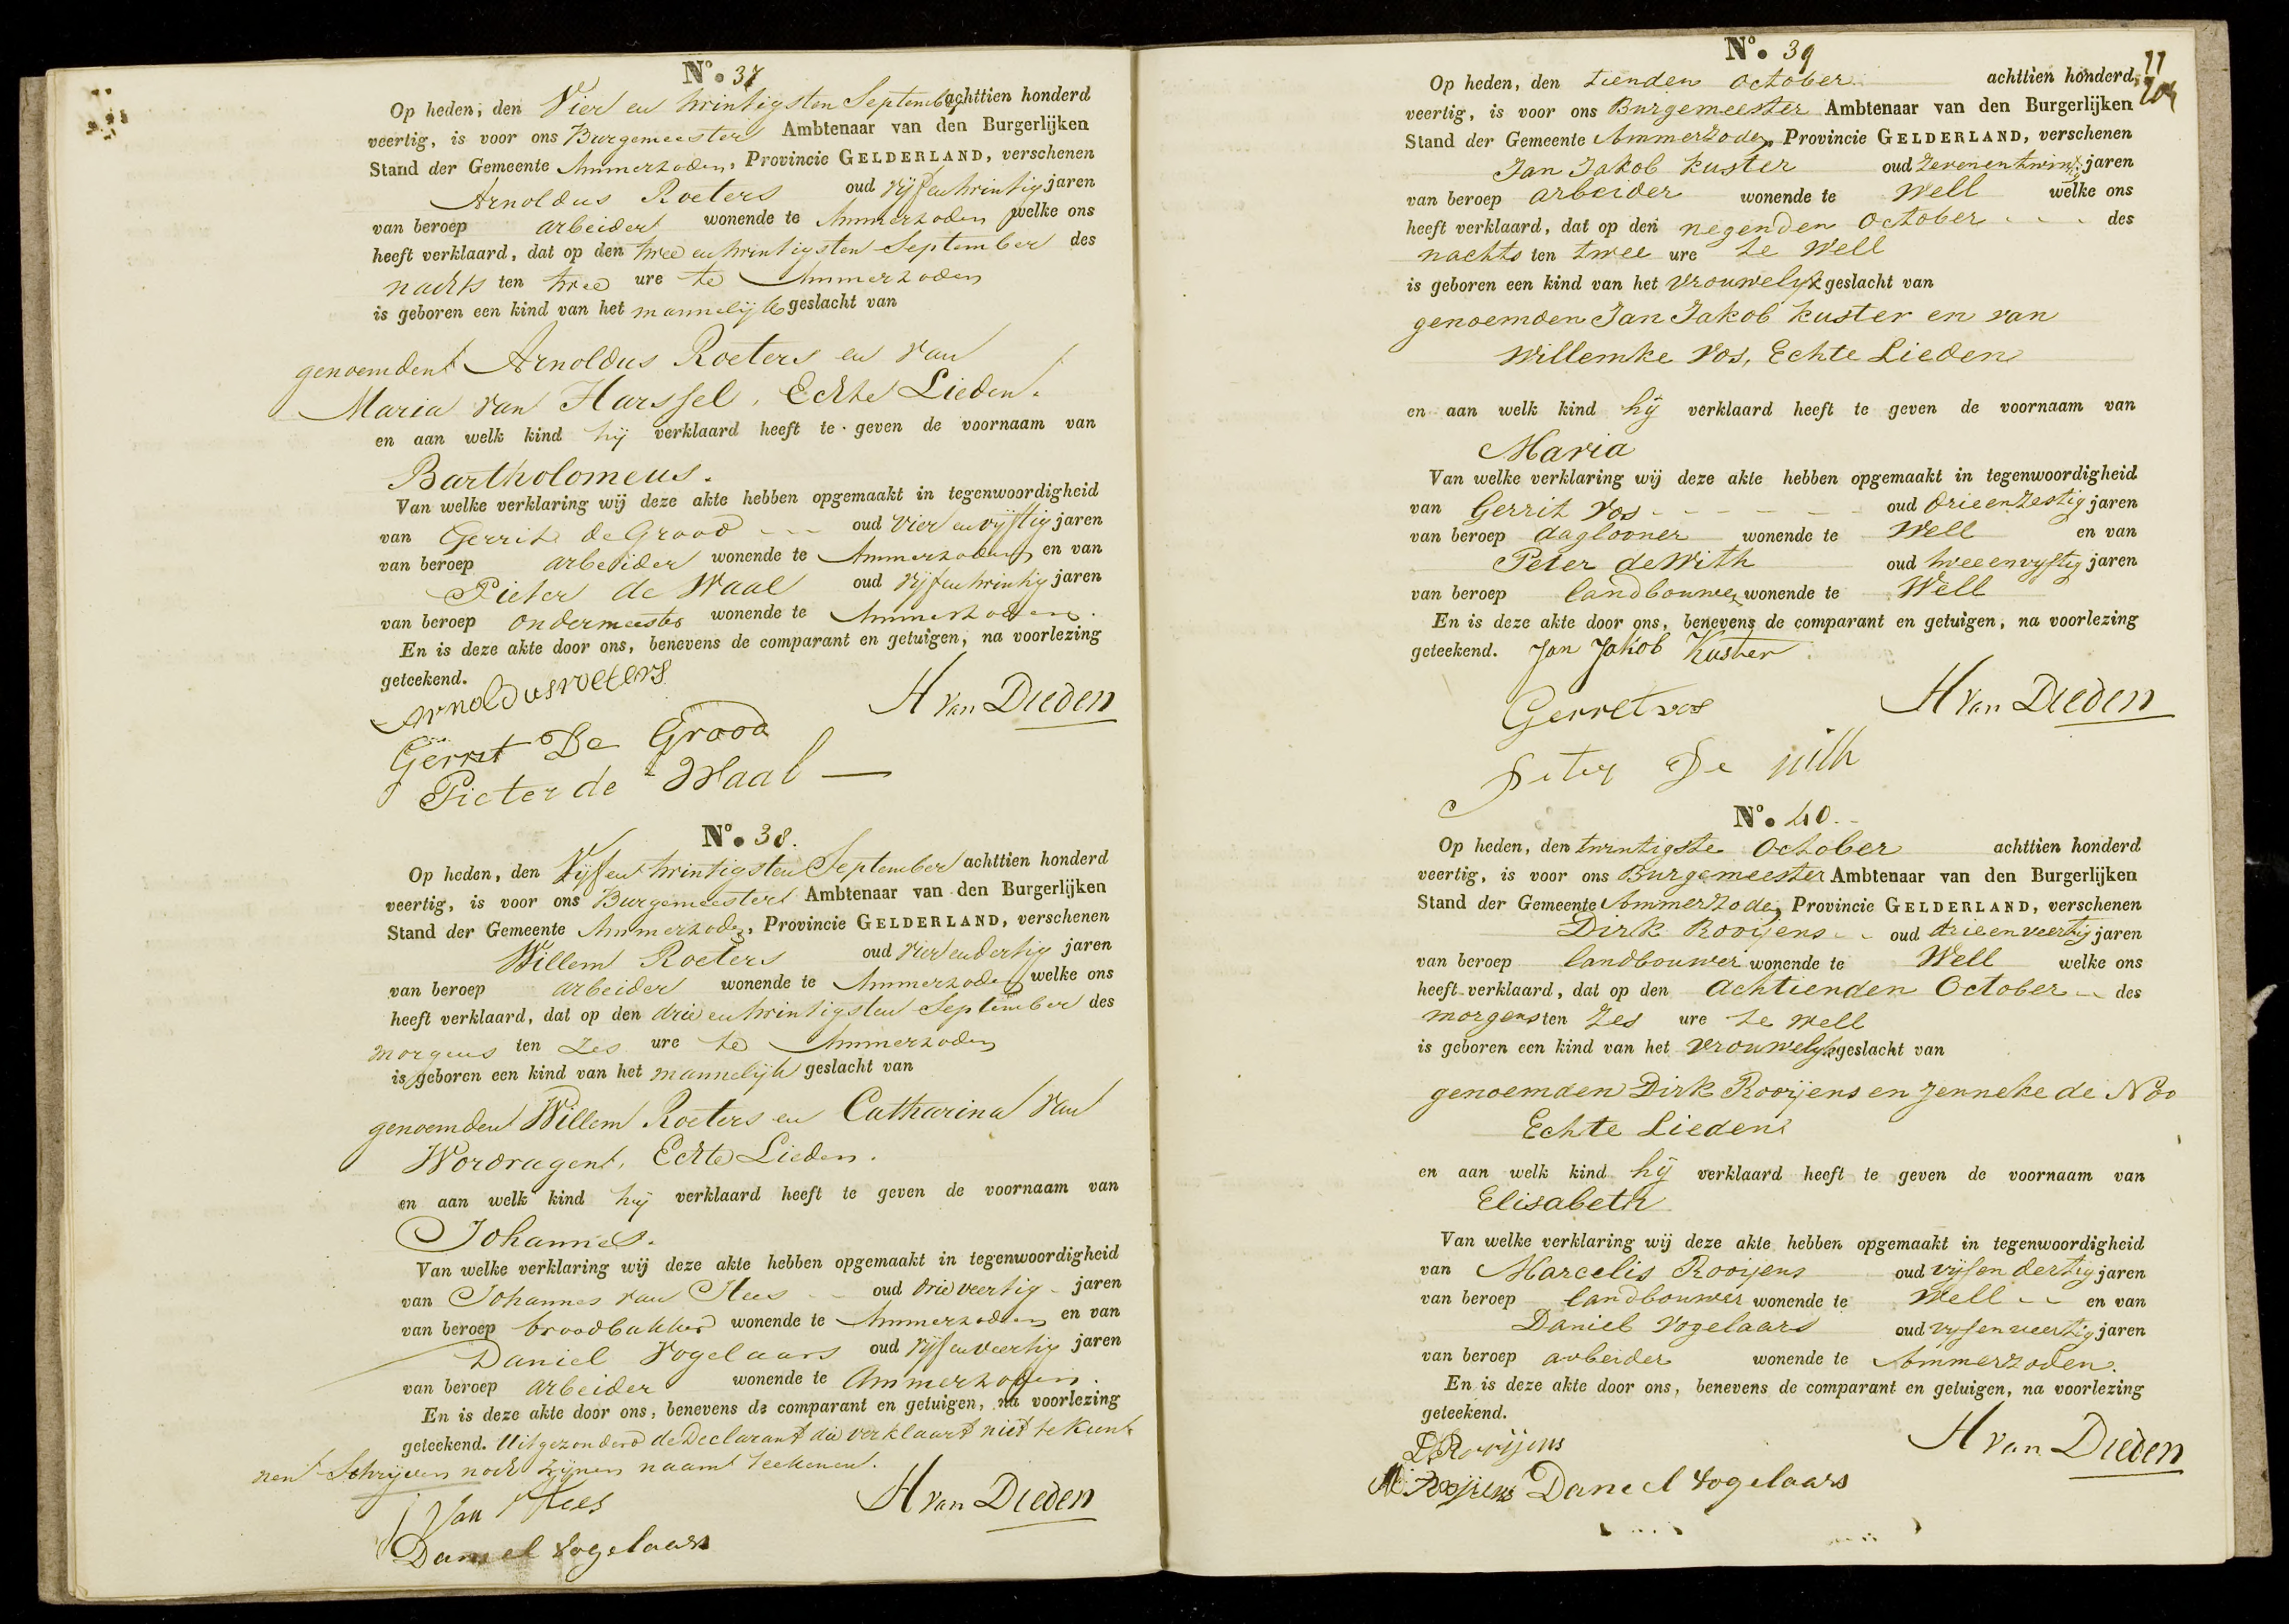 No. 37
Op heden, den Vier en twintigsten September achttien honderd
veertig, is voor ons Burgemeester Ambtenaar van den Burgerlijken
Stand der Gemeente Ammerzoden, Provincie GELDERLAND, verschenen
Arnoldus Roeters oud vijf en twintig jaren
van beroep arbeider wonende te Ammerzoden welke ons
heeft verklaard, dat op den twee en twintigsten September des
nachts ten twee ure te Ammerzoden
is geboren een kind van het mannelijk geslacht van
genoemden Arnoldus Roeters en van
Maria van Harssel, Echte Lieden.
en aan welk kind hij verklaard heeft te geven de voornaam van
Bartholomeus.
Van welke verklaring wij deze akte hebben opgemaakt in tegenwoordigheid
van Gerrit de Grood oud vier en vijftig jaren
van beroep arbeider wonende te Ammerzoden en van
Pieter de Waal oud vijf en twintig jaren
van beroep ondermeester wonende te Ammerzoden.
En is deze akte door ons, benevens de comparant en getuigen, na voorlezing
geteekend.
Arnoldus roeters
H van Dieden
Gerrit De Grood
Pieter de Waal
No. 38.
Op heden, den Vijf en twintigsten September achttien honderd
veertig, is voor ons Burgemeester Ambtenaar van den Burgerlijken
Stand der Gemeente Ammerzoden, Provincie GELDERLAND, verschenen
Willem Roeters oud vier en dertig jaren
van beroep arbeider wonende te Ammerzoden welke ons
heeft verklaard, dat op den drie en twintigsten September des
morgens ten zes ure te Ammerzoden
is geboren een kind van het mannelijk geslacht van
genoemden Willem Roeters en Catharina van
Wordragen, Echte Lieden.
en aan welk kind hij verklaard heeft te geven de voornaam van
Johannes.
Van welke verklaring wij deze akte hebben opgemaakt in tegenwoordigheid
van Johannes van Hees oud drie veertig jaren
van beroep broodbakker wonende te Ammerzoden en van
Daniel Vogelaars oud vijf en veertig jaren
van beroep arbeider wonende te Ammerzoden.
En is deze akte door ons, benevens de comparant en getuigen, na voorlezing
geteekend. Uitgezonderd de Declarant die verklaart niet te kun
nen Schrijven noch zijnen naam teekenen.
J Van Hees
H van Dieden
Daniel Vogelaars
No. 39
11
Op heden, den tienden October achttien honderd
veertig, is voor ons Burgemeester Ambtenaar van den Burgerlijken
Stand der Gemeente Ammerzoden, Provincie GELDERLAND, verschenen
Jan Jakob Kuster oud zevenentwint: jaren
van beroep arbeider wonende te Well welke ons
heeft verklaard, dat op den negenden October des
nachts ten twee ure te Well
is geboren een kind van het vrouwelyk geslacht van
genoemden Jan Jakob Kuster en van
Willemke Vos, Echte Lieden
en aan welk kind hij verklaard heeft te geven de voornaam van
Maria
Van welke verklaring wij deze akte hebben opgemaakt in tegenwoordigheid
van Gerrit Vos oud drieenzestig jaren
van beroep daglooner wonende te Well en van
Peter de With oud tweeenvyftig jaren
van beroep landbouwer wonende te Well
En is deze akte door ons, benevens de comparant en getuigen, na voorlezing
geteekend. Jan Jakob Kuster
Gerret vos
H van Dieden
Peter De With
No. 40.
Op heden, den twintigste October achttien honderd
veertig, is voor ons Burgemeester Ambtenaar van den Burgerlijken
Stand der Gemeente Ammerzoden, Provincie GELDERLAND, verschenen
Dirk Rooijens oud drieenveertig jaren
van beroep landbouwer wonende te Well welke ons
heeft verklaard, dat op den achtienden October des
morgens ten zes ure te Well
is geboren een kind van het vrouwelyk geslacht van
genoemden Dirk Rooijens en Jenneke de Noo
Echte Lieden
en aan welk kind hij verklaard heeft te geven de voornaam van
Elisabeth
Van welke verklaring wij deze akte hebben opgemaakt in tegenwoordigheid
van Marcelis Rooijens oud vijfendertig jaren
van beroep landbouwer wonende te Well en van
Daniel Vogelaars oud vyfenveertig jaren
van beroep arbeider wonende te Ammerzoden.
En is deze akte door ons, benevens de comparant en getuigen, na voorlezing
geteekend.
D Rooijens
H van Dieden
M Rooijens Daniel Vogelaars